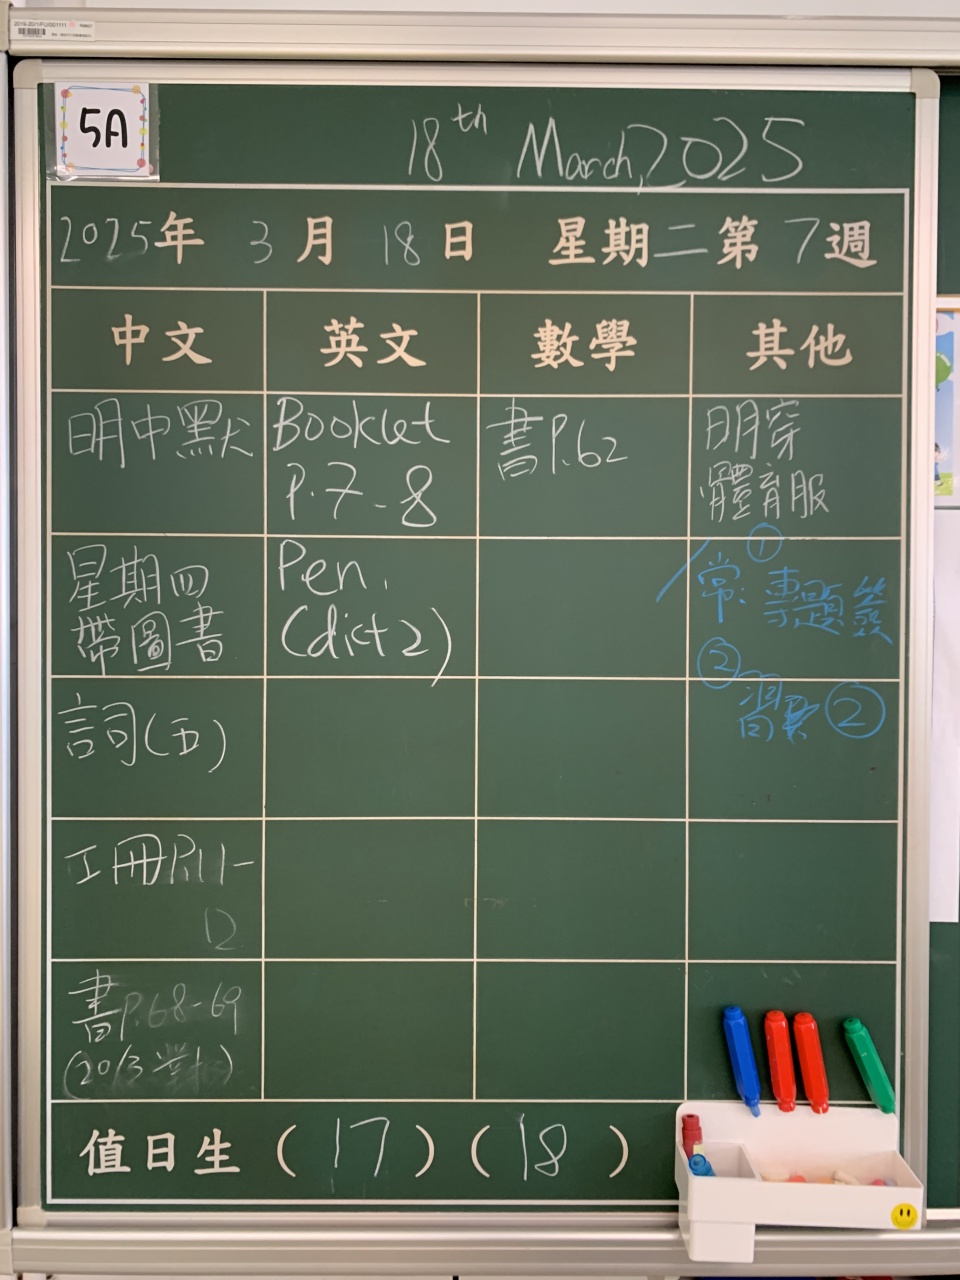 2019-20/1/FU/001111
5A
18th March, 2025
2025年 3月 18日 星期二第 7週
中文 英文 數學 其他
明中默
Booklet
P.7-8
書P.62
明穿
體育服
星期四
帶圖書
Pen.
(dict 2)
① 常: 專題簽
② 習 ②
詞(五)
工冊P.11-
12
書P.68-69
(20/3
值日生 ( 17 ) ( 18 )